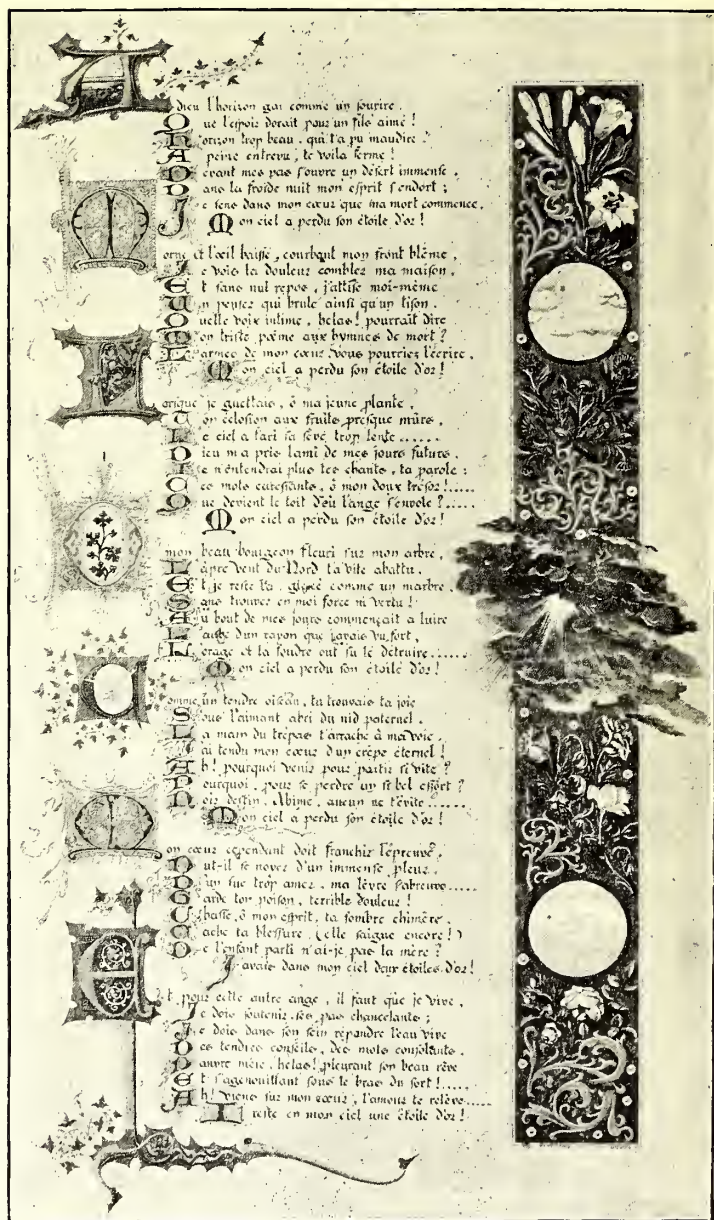 Adieu l'horizon gai comme un sourire,
Que l'espoir dorait pour un fils aimé!
Horizon trop beau, qui t'a pu maudire?
A peine entrevu, te voilà fermé!
Devant mes pas s'ouvre un désert immense,
Dans la froide nuit mon esprit s'endort;
Je sens dans mon cœur que ma mort commence,
Mon ciel a perdu son étoile d'or!
Morne et l'œil baissé, courbant mon front blême,
Je vois la douleur combler ma maison,
Et sans nul repos, j'attise moi-même
Un penser qui brule ainsi qu'un tison.
Quelle voix intime, helas! pourrait dire
Mon triste poème aux hymnes de mort?
Larmes de mon cœur vous pourriez l'écrire,
Mon ciel a perdu son étoile d'or!
Lorsque je guettais, ô ma jeune plante,
Ton éclosion aux fruits presque mûrs,
Le ciel a tari sa sève trop lente......
Dieu m'a pris l'ami de mes jours futurs.
Je n'entendrai plus tes chants, ta parole:
Ces mots caressants, ô mon doux trésor!.....
Que devient le toit d'où l'ange s'envole?.....
Mon ciel a perdu son étoile d'or!
mon beau bourgeon fleuri sur mon arbre,
L'âpre vent du Nord t'a vite abattu,
Et je reste là, glacé comme un marbre,
Sans trouver en moi force ni vertu!
Au bout de mes jours commençait a luire
L'aube d'un rayon que j'avais vu fort,
L'orage et la foudre ont su le détruire......
Mon ciel a perdu son étoile d'or!
Comme un tendre oiseau, tu trouvais ta joie
Sous l'aimant abri du nid paternel,
La main du trépas t'arrache à ma voie,
J'ai tendu mon cœur d'un crêpe éternel!
Ah! pourquoi venir pour partir si vite?
Pourquoi, pour se perdre un si bel effort?
Noir destin, Abime, aucun ne t'évite!.....
Mon ciel a perdu son étoile d'or!
Mon cœur cependant doit franchir l'épreuve,
Dut-il se noyer d'un immense pleur,
D'un suc trop amer, ma lèvre s'abreuve.....
Garde ton poison, terrible douleur!
Chasse, ô mon esprit, ta sombre chimère,
Cache ta blessure, (elle saigne encore!)
De l'enfant parti n'ai-je pas la mère?
J'avais dans mon ciel deux étoiles d'or!
Et pour cette autre ange, il faut que je vive,
Je dois soutenir ses pas chancelants;
Je dois dans son sein répandre l'eau vive
Des tendres conseils, des mots consolants.
Pauvre mère, helas! pleurant son beau rêve
Et s'agenouillant sous le bras du sort!.....
Ah! viens sur mon cœur, l'amour te relève.....
Il reste en mon ciel une étoile d'or!